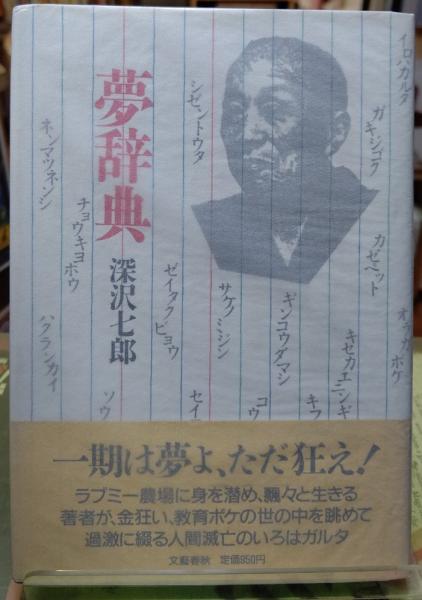 夢辞典
深沢七郎
イロハガルタ
ガキジゴク
カゼベット
オラガボケ
キセカエニンギ
キフ
ギンコウダマシ
コウ
サケノミジン
シゼントウタ
セイ
ゼイタクビョウ
ソウ
チョウキヨホウ
ネンマツネンシ
ハクランカイ
一期は夢よ、ただ狂え!
ラブミー農場に身を潜め、飄々と生きる
著者が、金狂い、教育ボケの世の中を眺めて
過激に綴る人間滅亡のいろはガルタ
文藝春秋 定価950円